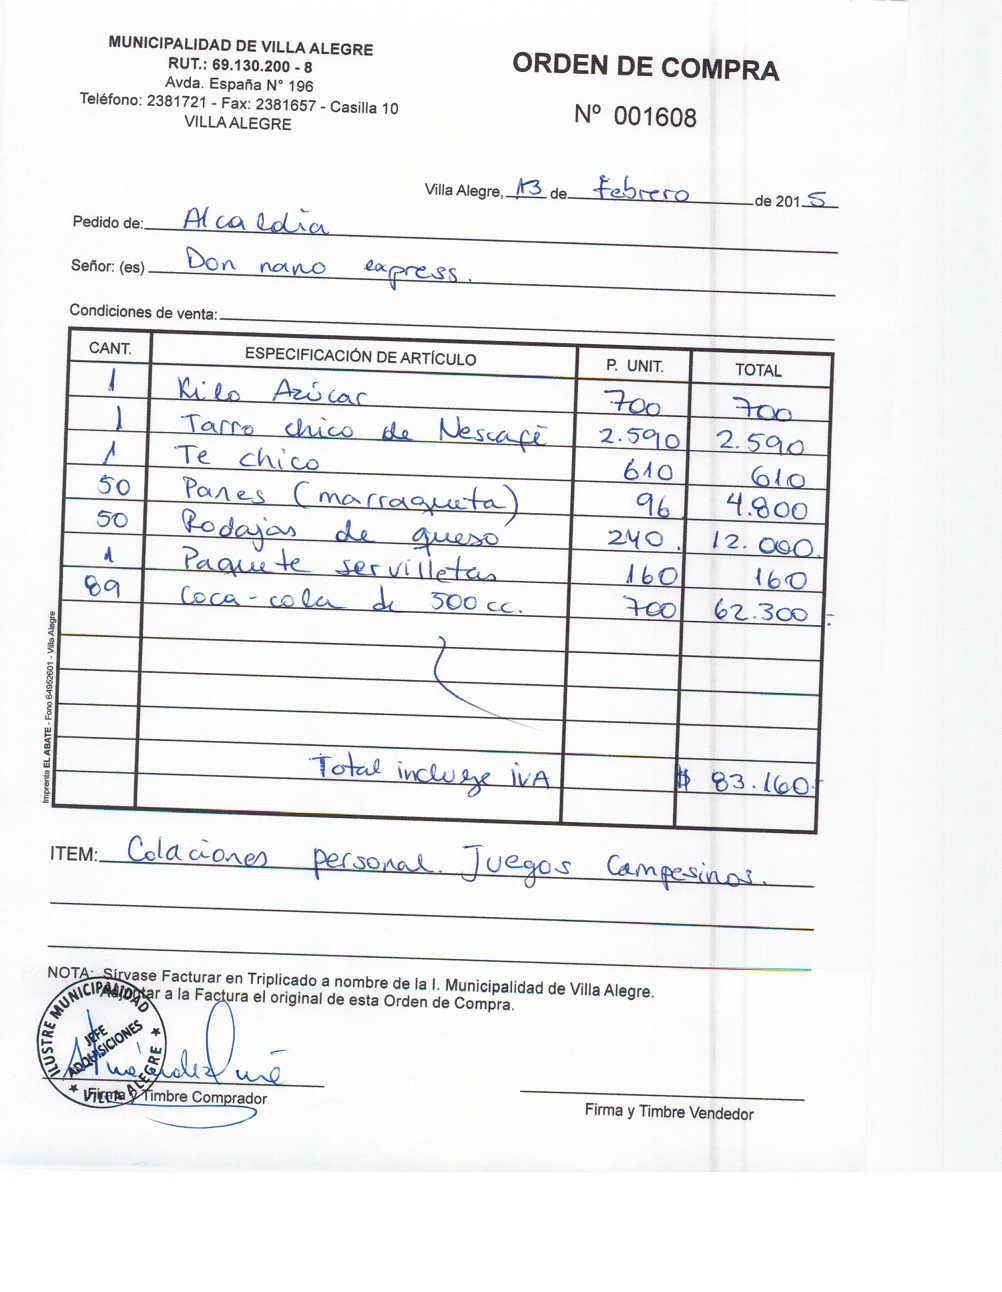 MUNICIPALIDAD DE VILLA ALEGRE
RUT.: 69.130.200 - 8
Avda. España N° 196
Teléfono: 2381721 - Fax: 2381657 - Casilla 10
VILLA ALEGRE
ORDEN DE COMPRA
Nº 001608
Villa Alegre, 13 de Febrero de 2015
Pedido de: Alcaldía
Señor: (es) Don nano express.
Condiciones de venta:
CANT. ESPECIFICACIÓN DE ARTÍCULO P. UNIT. TOTAL
1 Kilo Azúcar 700 700
1 Tarro chico de Nescafé 2.590 2.590
1 Te chico 610 610
50 Panes (marraqueta) 96 4.800
50 Rodajas de queso 240. 12.000.
1 Paquete servilletas 160 160
89 Coca-cola de 500 cc. 700 62.300.-
Total incluye iVA $ 83.160.-
Imprenta EL ABATE - Fono 64952601 - Villa Alegre
ITEM: Colaciones personal. Juegos Campesinos.
NOTA: Sírvase Facturar en Triplicado a nombre de la I. Municipalidad de Villa Alegre.
Adjuntar a la Factura el original de esta Orden de Compra.
ILUSTRE MUNICIPALIDAD
JEFE
ADQUISICIONES
★ VILLA ALEGRE ★
Firma y Timbre Comprador
Firma y Timbre Vendedor